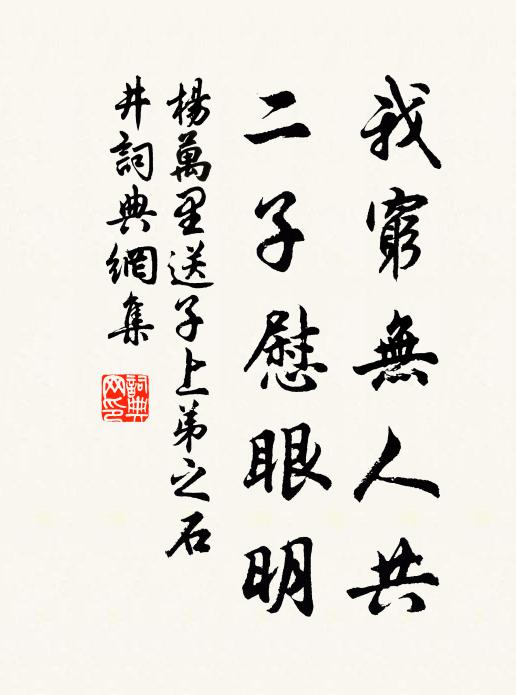 我窮無人共
二子慰眼明
楊萬里送子上弟之石
井詞典網集
詞典
网印